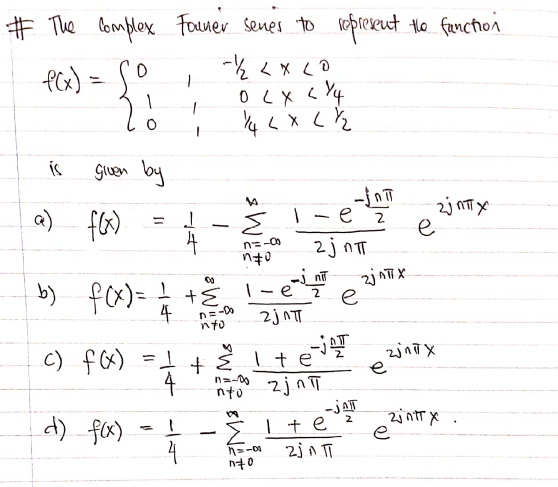 # The Complex Fourier series to represent the function
f(x) = { 0 , -1/2 < x < 0
1 , 0 < x < 1/4
0 , 1/4 < x < 1/2
is given by
a) f(x) = 1/4 - ∑_{n=-∞, n≠0}^{∞} (1 - e^{-j nπ/2})/(2jnπ) e^{2jnπx}
b) f(x) = 1/4 + ∑_{n=-∞, n≠0}^{∞} (1 - e^{-j nπ/2})/(2jnπ) e^{2jnπx}
c) f(x) = 1/4 + ∑_{n=-∞, n≠0}^{∞} (1 + e^{-j nπ/2})/(2jnπ) e^{2jnπx}
d) f(x) = 1/4 - ∑_{n=-∞, n≠0}^{∞} (1 + e^{-j nπ/2})/(2jnπ) e^{2jnπx} .